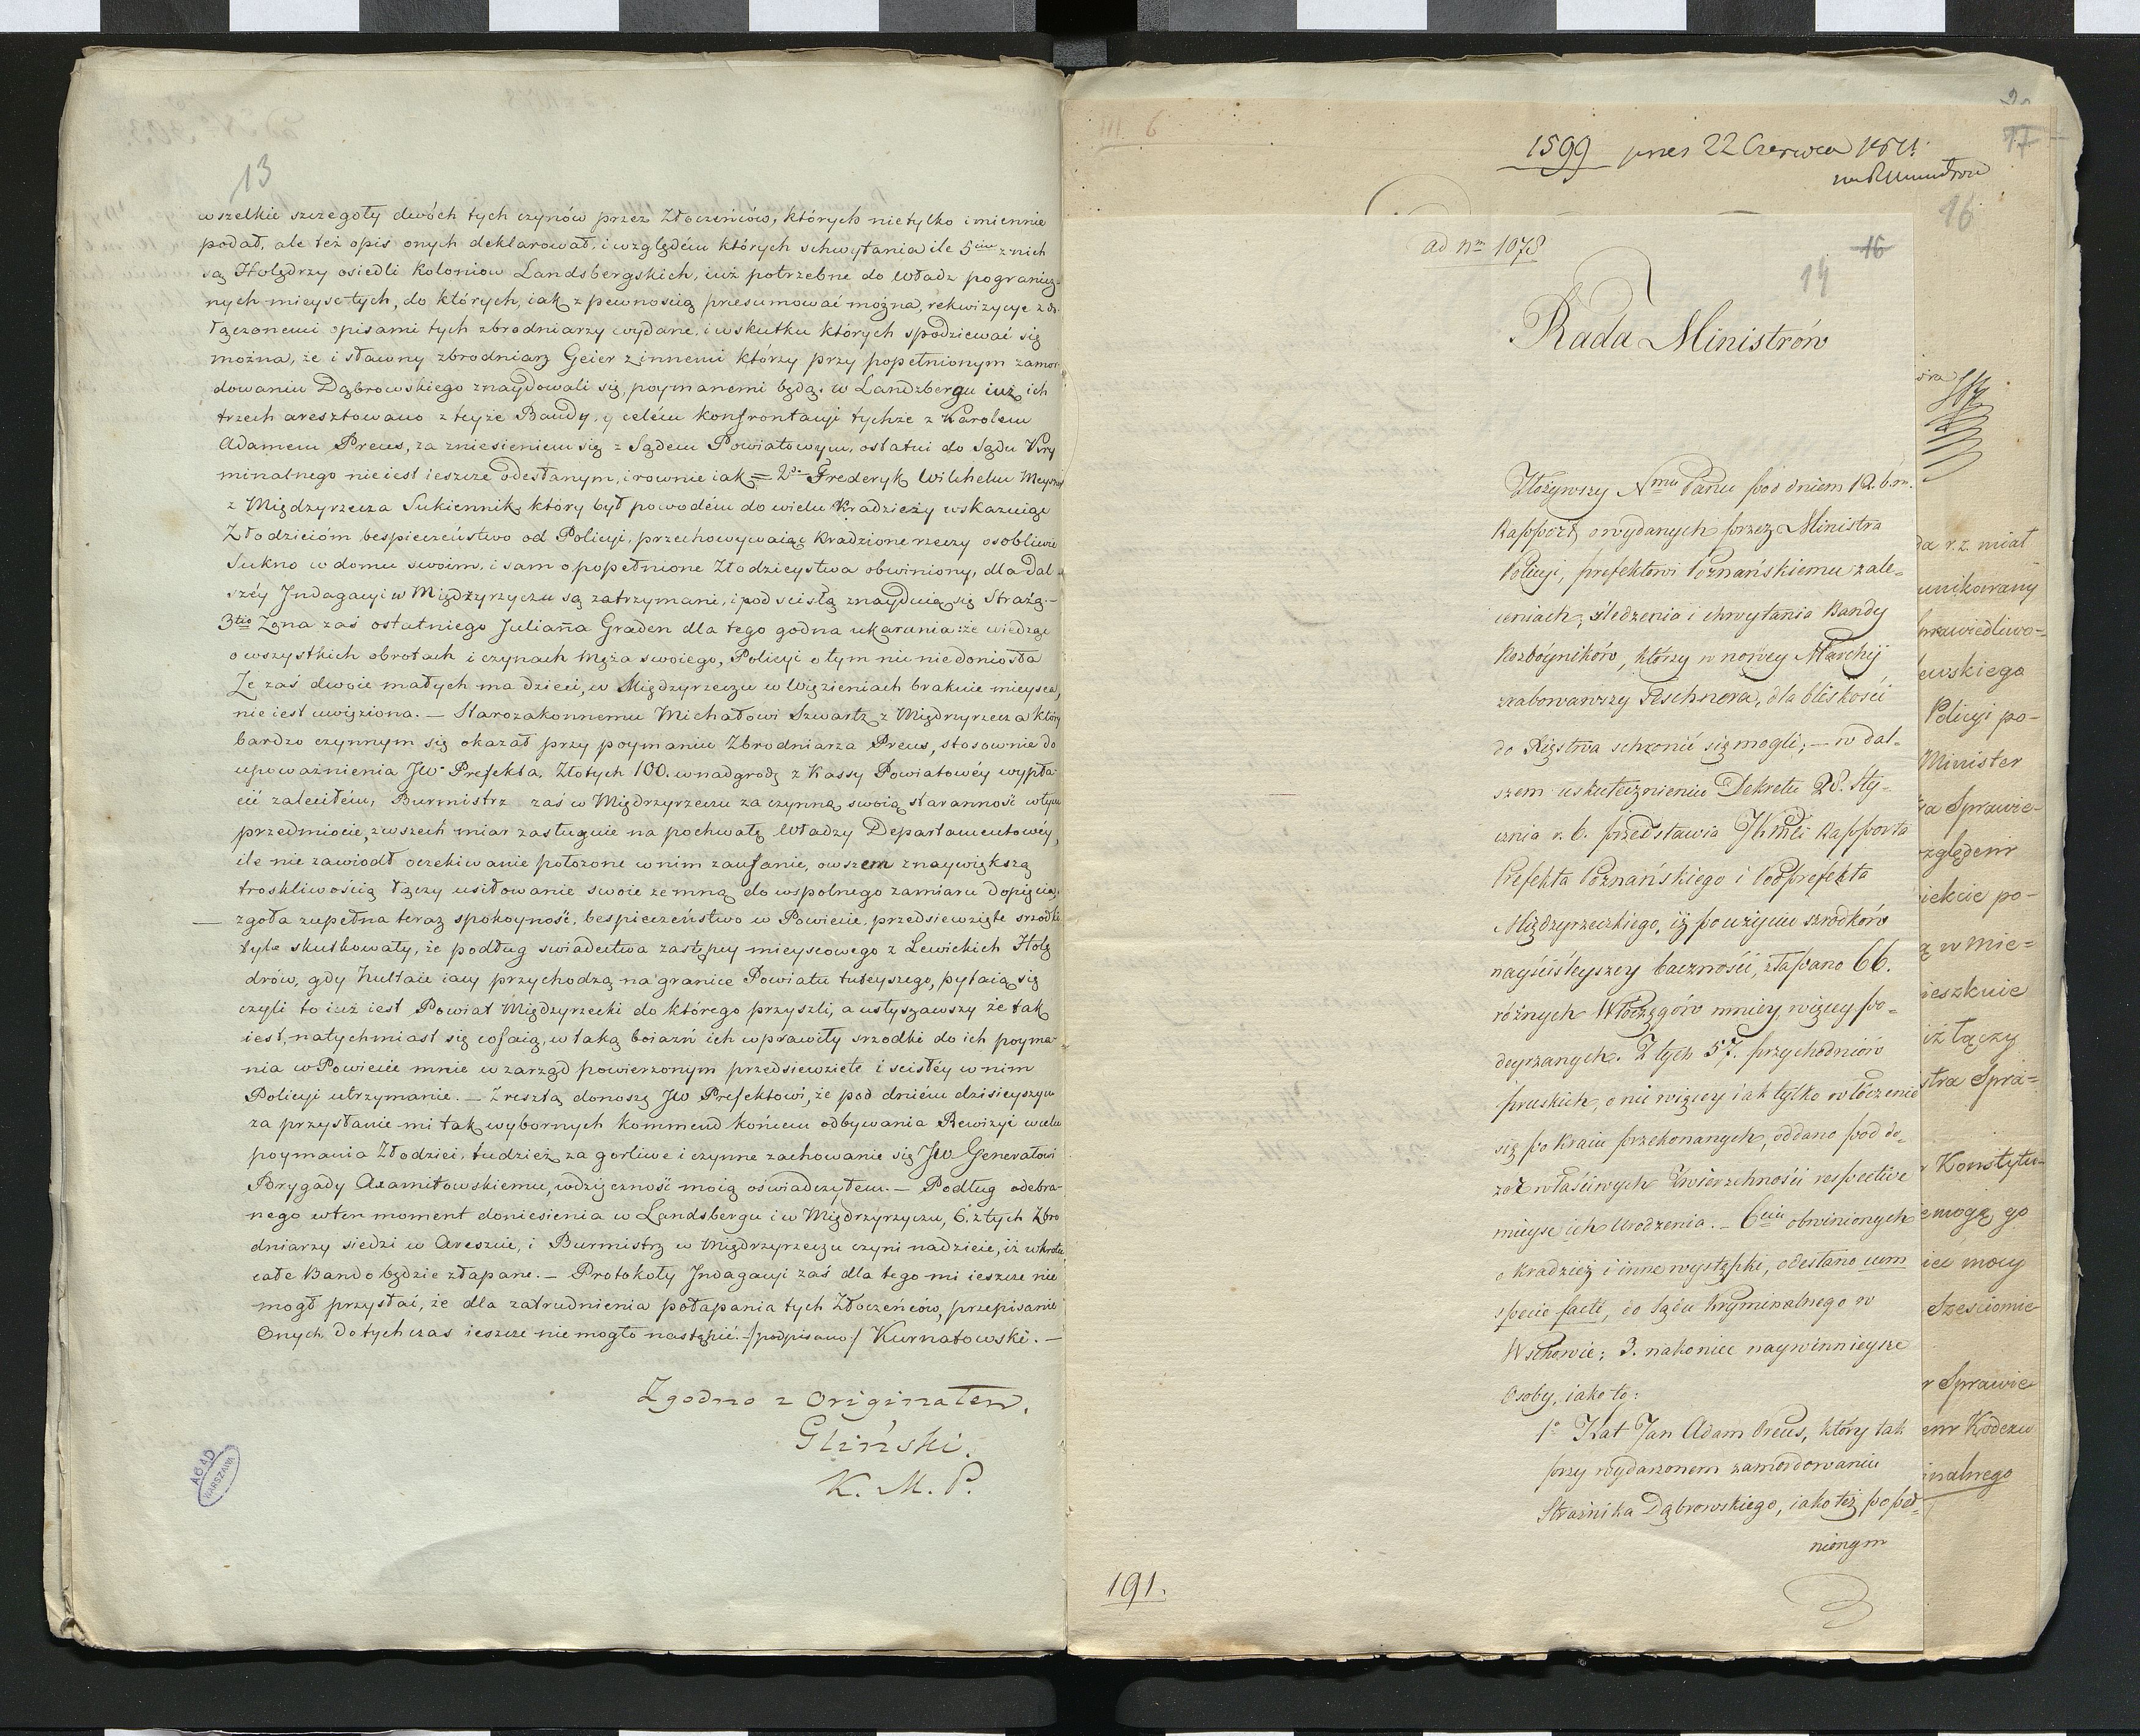 13
wszelkie szczegoły dwóch tych czynów przez Złoczeńców, których nietylko imiennie
podał, ale też opis onych deklarował, i względém których schwytania ile 5ciu z nich
są Holędrzy osiedli koloniow Landsbergskich, iuż potrzebne do Władz pogranicz-
nych mieysc tych, do których, iak z pewnością presumować można, rekwizycye z do-
łączonemi opisami tych zbrodniarzy wydane, i w skutku których spodziewać się
można, że i sławny zbrodniarz Geier z innemi którzy przy popełnionym zamor-
dowaniu Dąbrowskiego znaydowali się, poymanemi będą, w Landzbergu iuż ich
trzech aresztowano z teyże Bandy, y celém konfrontacyi tychże z Karolem
Adamem Preus, za zniesieniem się z Sądem Powiatowym, ostatni do Sądu Kry
minalnego nieiest ieszcze odesłanym, i rownie iak = 2do Frederyk Wilhelm
z Międzyrzecza Sukiennik, który był powodém do wielu Kradzieży wskazuiąc
Złodzieióm bespieczeństwo od Policyi, przechowywaiąc kradzione rzeczy osobliwie
Sukno w domu swoim, i sam o popełnione Złodzieystwa obwiniony, dla dal
széy Indagacyi w Międzyrzyczu są zatrzymani, i pod scisłą znayduią się Strażą.-
3tio Żona zaś ostatniego Julianna Graden dla tego godna ukarania: że wiedząc
o wszystkich obrotach i czynach Męża swoiego, Policyi o tym nic niedoniosła
Że zaś dwoie małych ma dzieci, w Międzyrzeczu w Więzieniach brakuie mieysca,
nie iest uwięziona. — Starozakonnemu Michałowi Szwartz z Międzyrzecza który
bardzo czynnym się okazał przy poymaniu Zbrodniarza Preus, stosownie do
upoważnienia JW Prefekta, Złotych 100. w nadgrodę z Kassy Powiatowéy wypła
cić zaleciłém, Burmistrz zaś w Międrzyrzeczu za czynną swoią staranność w tym
przedmiocie, zewszech miar zasługuie na pochwałę Władzy Departamentowéy,
ile nie zawiodł oczekiwanie położone w nim zaufanie, owszem znaywiększą
troskliwością łączy usiłowanie swoie zemną do wspolnego zamiaru dopięcia,
— zgoła zupełna teraz spokoyność, bespieczeństwo w Powiecie, przedsiewzięte srzodki
tyle skutkowały, że podług swiadectwa zastępcy mieyscowego z Lewickich Holę
drów, gdy hultaie iacy przychodzą na granice Powiatu tuteyszego, pytaią się
czyli to iuż iest Powiat Międzyrzecki do którego przyszli, a usłyszawszy że tak
iest, natychmiast się cofaią, w taką boiazń ich wprawiły srzodki do ich poyma-
nia w Powiecie mnie w zarząd powierzonym przedsiewziete i scisłéy w nim
Policyi utrzymanie. — Zresztą donoszę JW Prefektowi, że pod dniém dzisieyszym
za przysłanie mi tak wybornych kommend końcem odbywania Rewizyi w celu
poymania Złodziei, tudzież za gorliwe i czynne zachowanie się JW Generałowi
Brygady Axamitowskiemu, wdzięczność moią oświadczyłem. — Podług odebra-
nego w ten moment doniesienia w Landsbergu i w Międrzyrzyczu, 6. z tych Zbro
dniarzy siedzi w Areszcie, i Burmistrz w Międrzyrzeczu czyni nadzieie, iż wkrotce
całe Bando będzie złapane. — Protokoły Indagacyi zaś dla tego mi ieszcze nie
mogł przysłać, że dla zatrudnienia połapania tych Złoczeńców, przepisanie
Onych dotychczas ieszcze nie mogło nastąpić. — /podpisano/ Kurnatowski. —
Zgodno z Originałem.
Gliński.
K. M. P.
AGAD
WARSZAWA
III. 6
1599 22 Czerwca
17
16
ad nm 1078
16
14
Rada Ministrów
Złożywszy Nmu Panu pod dniem 12. b. m.
Rapport o wydanych przez Ministra
Policyi, prefektowi Poznańskiemu zale-
ceniach, śledzenia i chwytania Bandy
Rozbóyników, którzy w nowey Marchij
zrabowawszy Peschnera, dla bliskości
do Xięstwa schronić się mogli, — w dal-
szem uskutecznieniu Dekretu 28. Sty-
cznia r. b. przedstawia Jhmść Rapporta
Prefekta Poznańskiego i Podprefekta
Międzyrzeckiego, iż po użyciu szrodków
nayściśleyszey baczności, złapano 66.
różnych Włóczęgów mniey więcey po-
deyrzanych. Z tych 57. przychodniów
pruskich, o nic więcey iak tylko włóczenie
się po kraiu przekonanych, oddano pod do-
zór właściwych Zwierzchności respective
mieysc ich Urodzenia. — 6ciu obwinionych
o kradzież i inne występki, odesłano cum
specie facti, do Sądu kryminalnego w
Wschowie; 3. nakoniec naywinnieysze
Osoby, iako to:
1° Kat Jan Adam Preus, który tak
przy wydarzonem zamordowaniu
Strażnika Dąbrowskiego, iako też popeł-
nionym
191.
da r. z. miał
unikowany
prawiedliwo-
ewskiego
Policyi po-
Minister
ra Sprawie-
względem
iekcie po-
ą w mie-
ieszkuie
iż łączy
stra Spra-
Konstytu-
emogą go
iei mocy
Sześciomie
r Sprawie
em Kodexu
inalnego